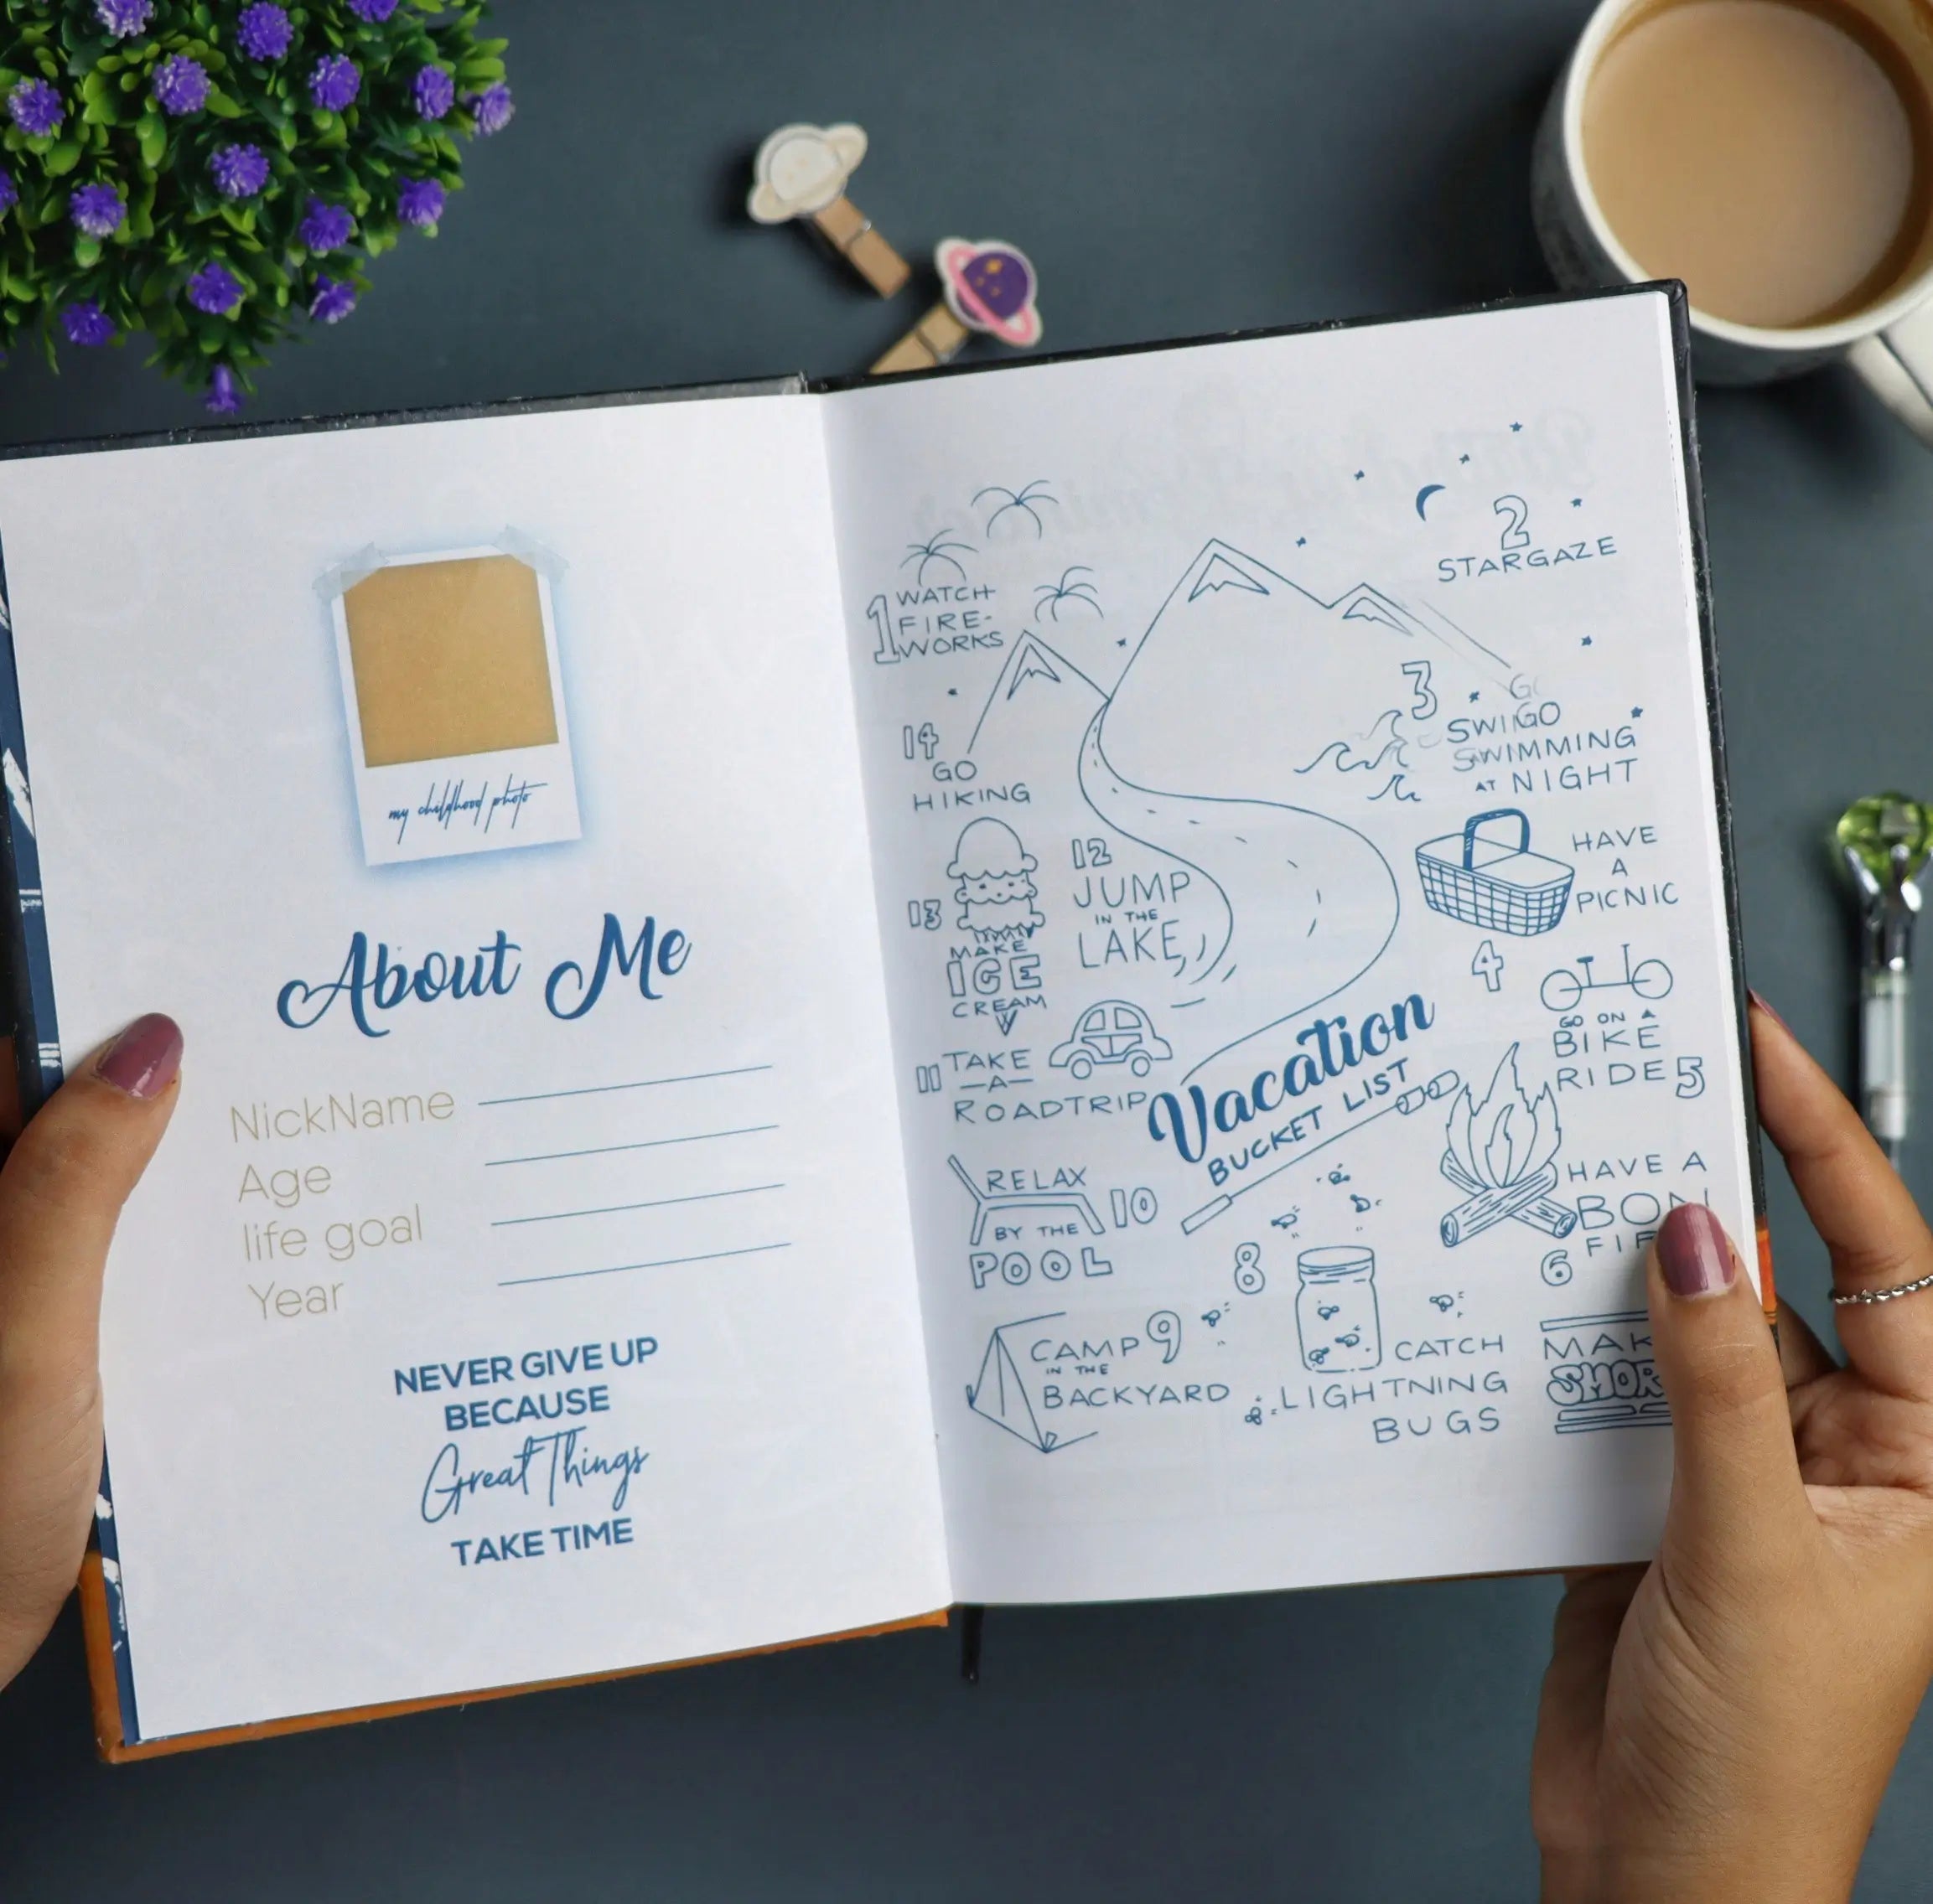 my childhood photo
About Me
NickName
Age
life goal
Year
NEVER GIVE UP
BECAUSE
Great Things
TAKE TIME
1 WATCH
FIRE-
WORKS
2
STARGAZE
3
GO
SWIGO
SWIMMING
AT NIGHT
HAVE
A
PICNIC
4
GO ON A
BIKE
RIDE 5
HAVE A
BON
FIR
6
MAK
SMOR
8
CATCH
LIGHTNING
BUGS
CAMP 9
IN THE
BACKYARD
RELAX
10
BY THE
POOL
11 TAKE
-A-
ROADTRIP
12
JUMP
IN THE
LAKE
13
MAKE
ICE
CREAM
14
GO
HIKING
Vacation
BUCKET LIST